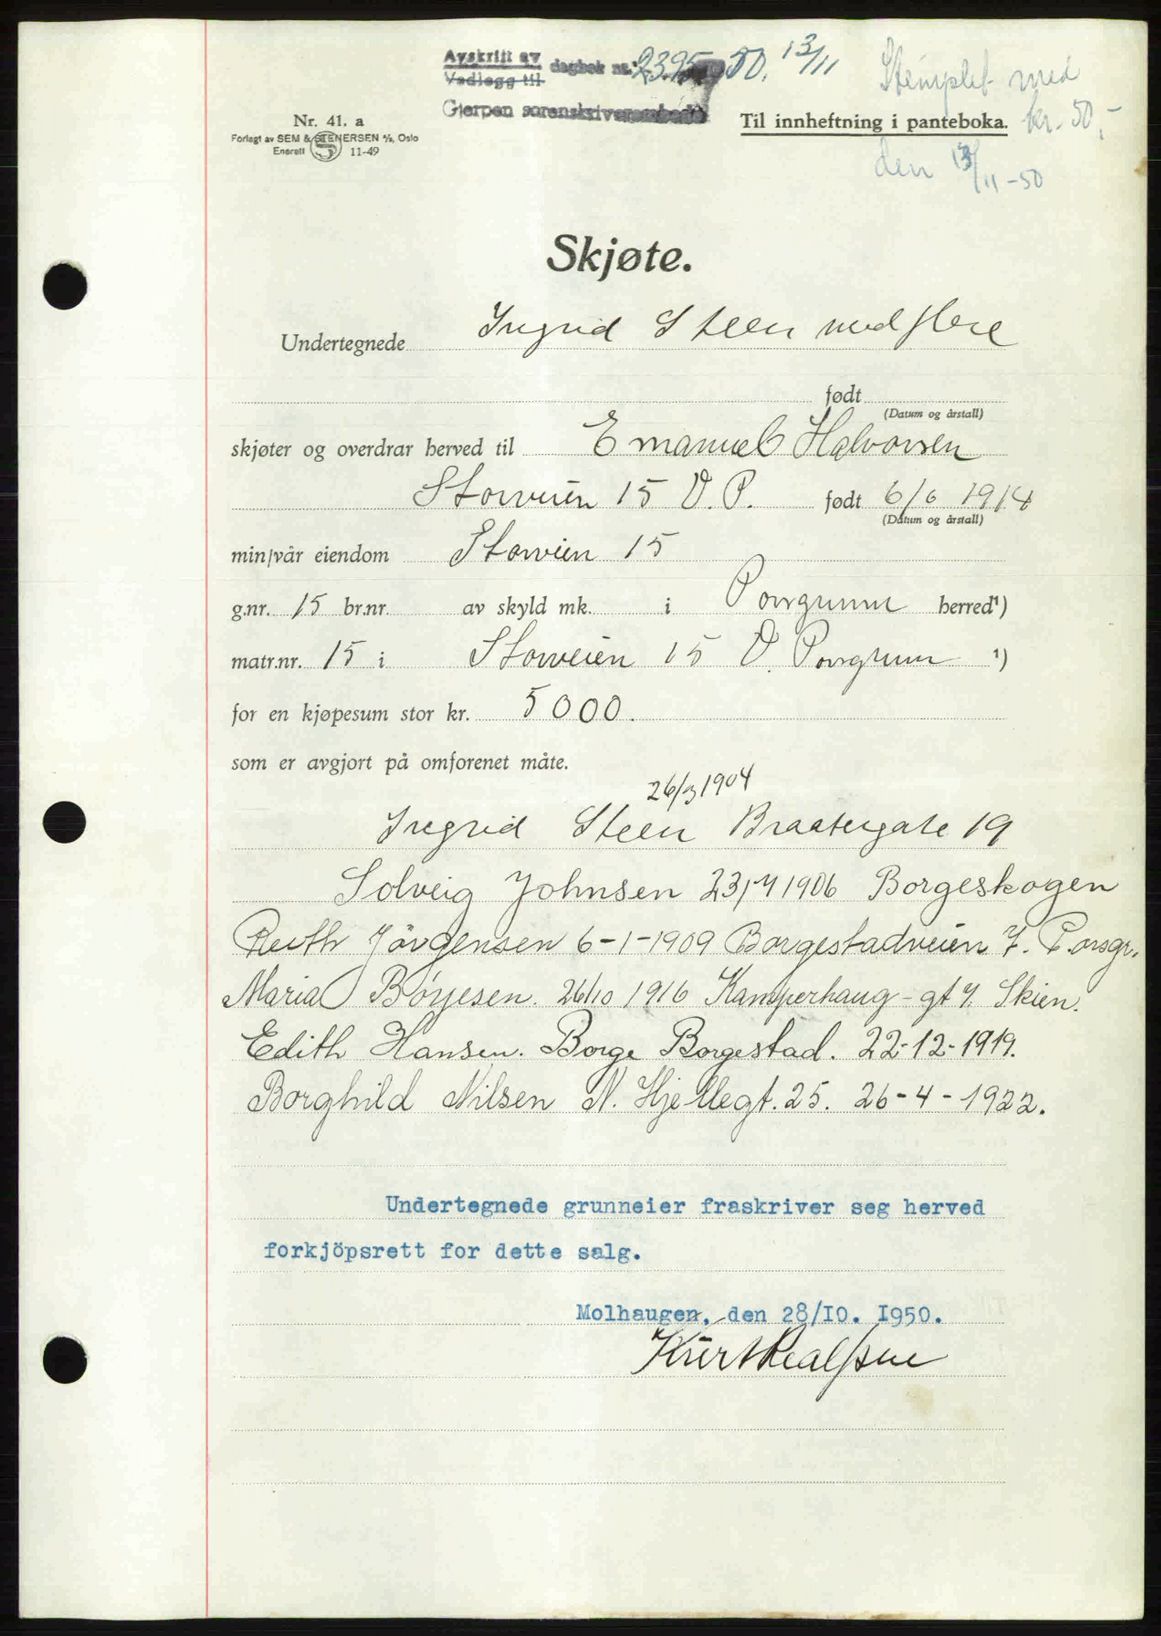 Avskrift av
Vedlegg til dagbok nr. 2395 50. 13/11
Gjerpen sorenskriverembede
Stemplet med
kr. 50,-
den 13/11-50
Nr. 41. a
Forlagt av SEM & STENERSEN A/S, Oslo
Enerett 11-49
Til innheftning i panteboka.
Skjøte.
Undertegnede Ingrid Steen med flere
født
(Datum og årstall)
skjøter og overdrar herved til Emanuel Halvorsen
Storveien 15 V. P. født 6/6 1914
(Datum og årstall)
min/vår eiendom Storveien 15
g.nr. 15 br.nr. av skyld mk. i Porsgrunn herred¹)
matr.nr. 15 i Storveien 15 V. Porsgrunn ¹)
for en kjøpesum stor kr. 5000.
som er avgjort på omforenet måte.
26/3 1904
Ingrid Steen Braatergate 19
Solveig Johnsen 23/4 1906 Borgeskogen
Ruth Jörgensen 6-1-1909 Borgestadveien 7. Porsgr.
Maria Börjesen. 26/10 1916 Kamperhaug-gt 4. Skien.
Edith Hansen. Borge Borgestad. 22-12-1919.
Borghild Nilsen N. Hjellegt. 25. 26-4-1922.
Undertegnede grunneier fraskriver seg herved
forkjöpsrett for dette salg.
Molhaugen, den 28/10. 1950.
Kurt Realfsen